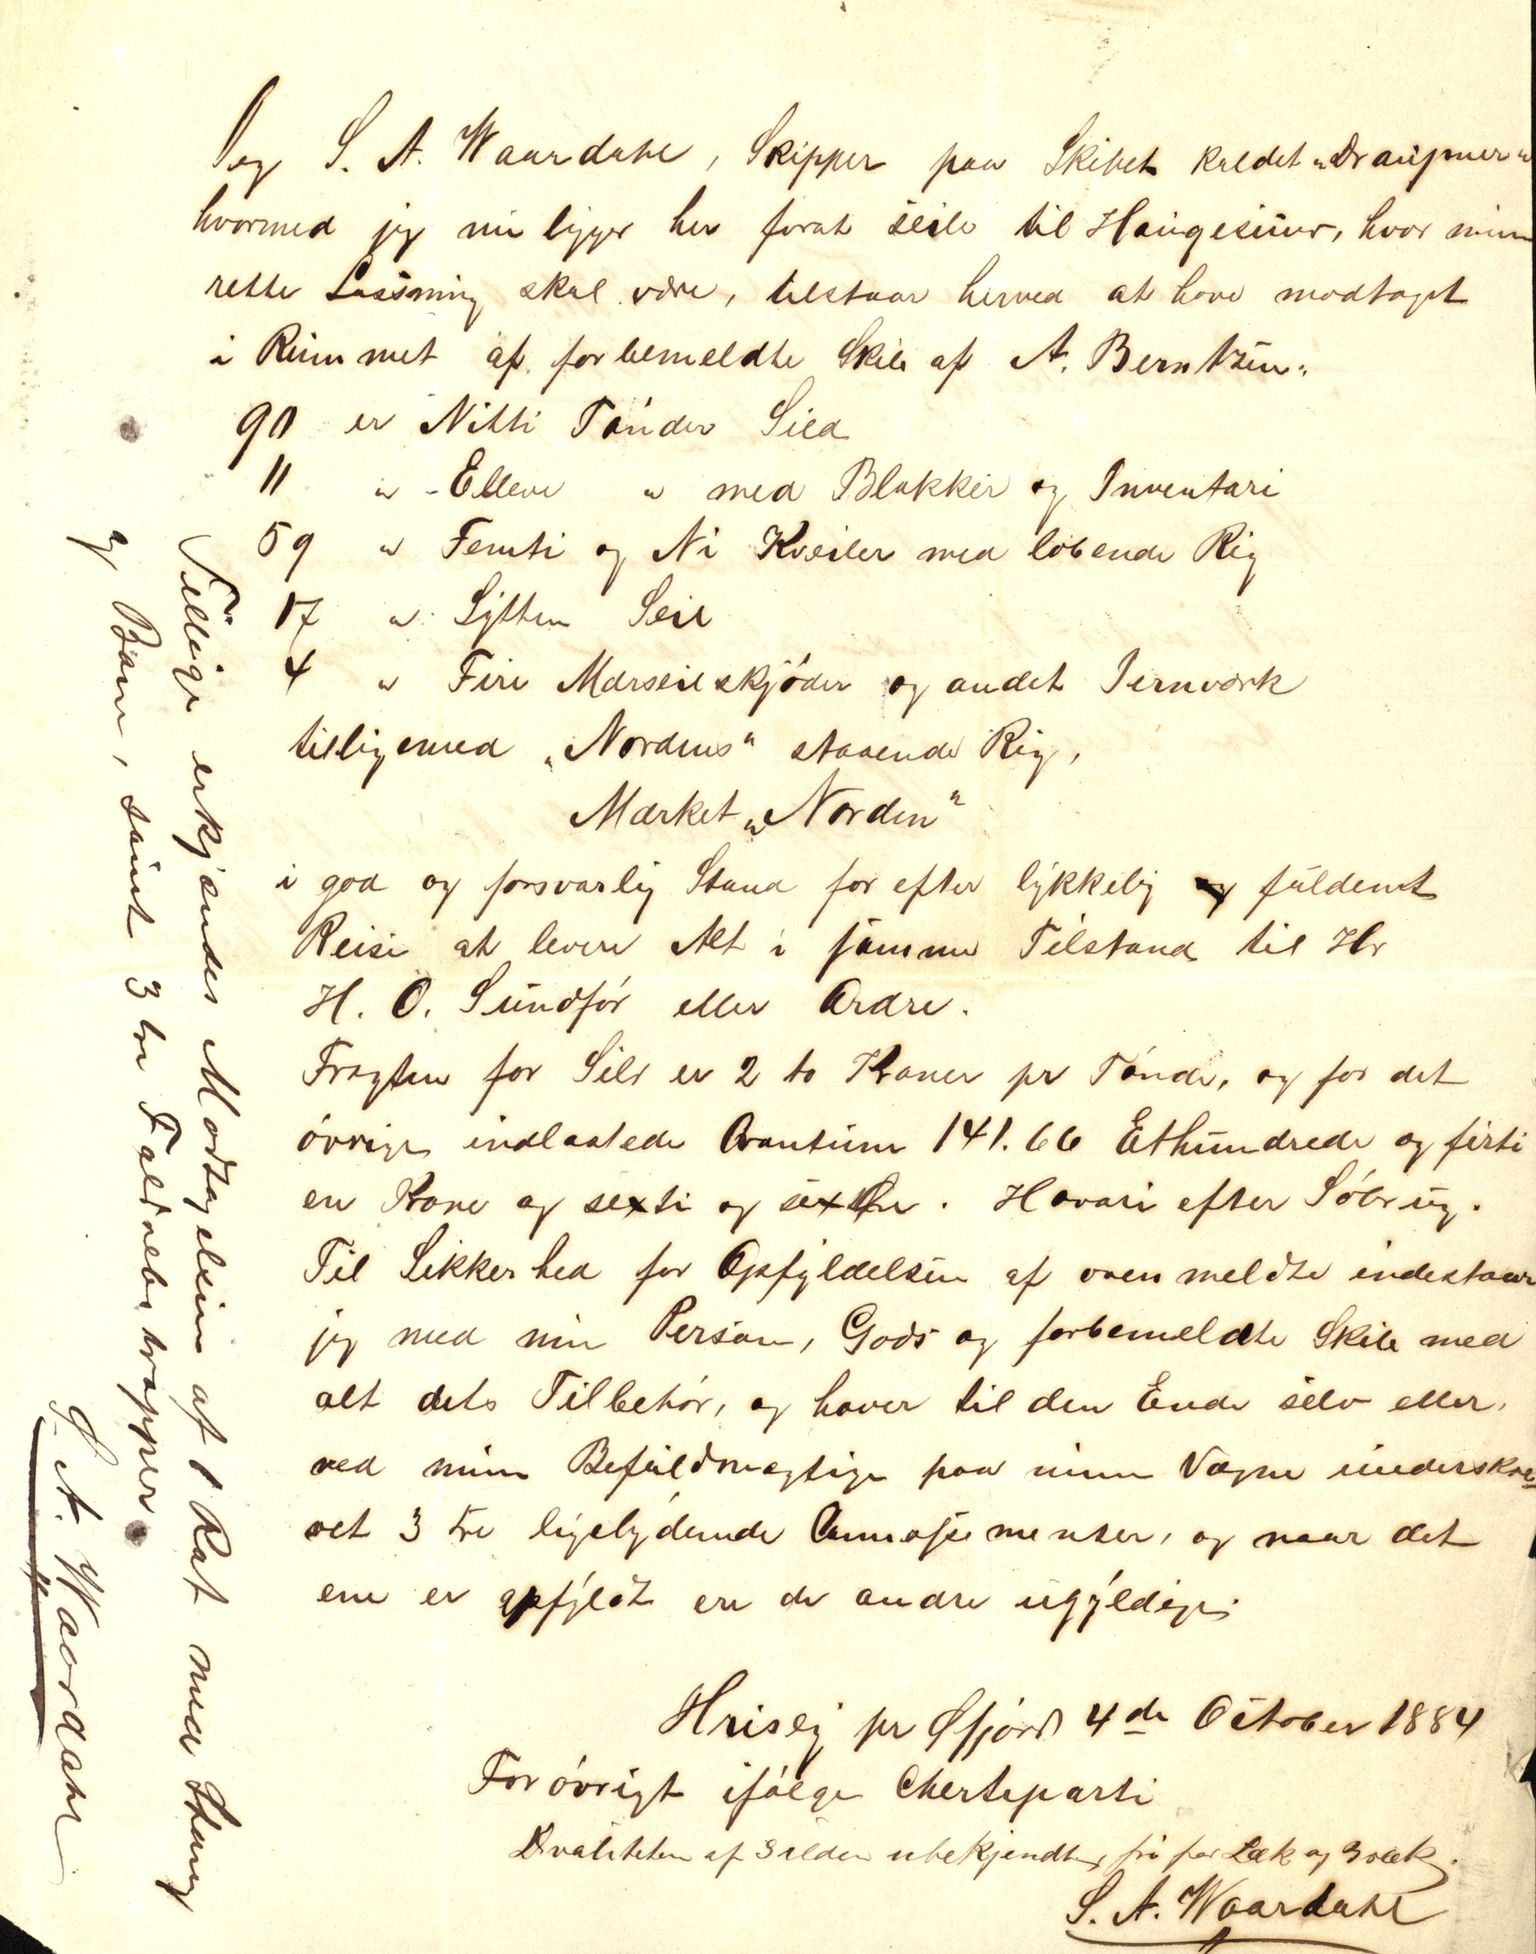 Jeg S. A. Waardahl, Skipper paa Skibet kaldet „Draupner“
hvormed jeg nu ligger her forat seile til Haugesund, hvor min
rette Lossning skal være, tilstaar herved at have modtaget
i Rummet af forbemeldte Skib af A. Berntzen.
90 er Nitti Tönder Sild
11 " - Elleve " med Blokker og Inventari
59 " Femti og Ni Kveiler med löbende Rig
17 " Sytten Seil
4 " Fire Mærseilskjöder og andet Jernværk
tilligemed „Nordens“ staaende Rig,
Mærket „Norden“
i god og forsvarlig Stand for efter lykkelig og fuldendt
Reise at levere Alt i samme Tilstand til Hr
H. O. Sundför eller Ordre.
Fragten for Sild er 2 to Kroner pr Tönde, og for det
övrige indladede Qvantum 141.66 Ethundrede og firti
en Krone og sexti og sex Öre. Havari efter Söbrug.
Til Sikkerhed for Opfyldelsen af ovenmeldte indestaar
jeg med min Person, Gods og forbemeldte Skib med
alt dets Tilbehör, og haver til den Ende selv eller
ved min Befuldmægtige paa mine Vegne underskre-
vet 3 tre ligelydende Connossementer, og naar det
ene er opfyldt ere de andre ugyldige.
Hrisey pr Öfjord 4de October 1884
Forövrigt ifölge Cherteparti
Kvaliteten af Silden ubekjendt, fri for Læk og Bræk.
S. A. Waardahl
Tillige erkjændes Modtagelsen af 1 Rat med Stang
og Bom, samt 3 tre Faldrebstrapper
S. A. Waardahl